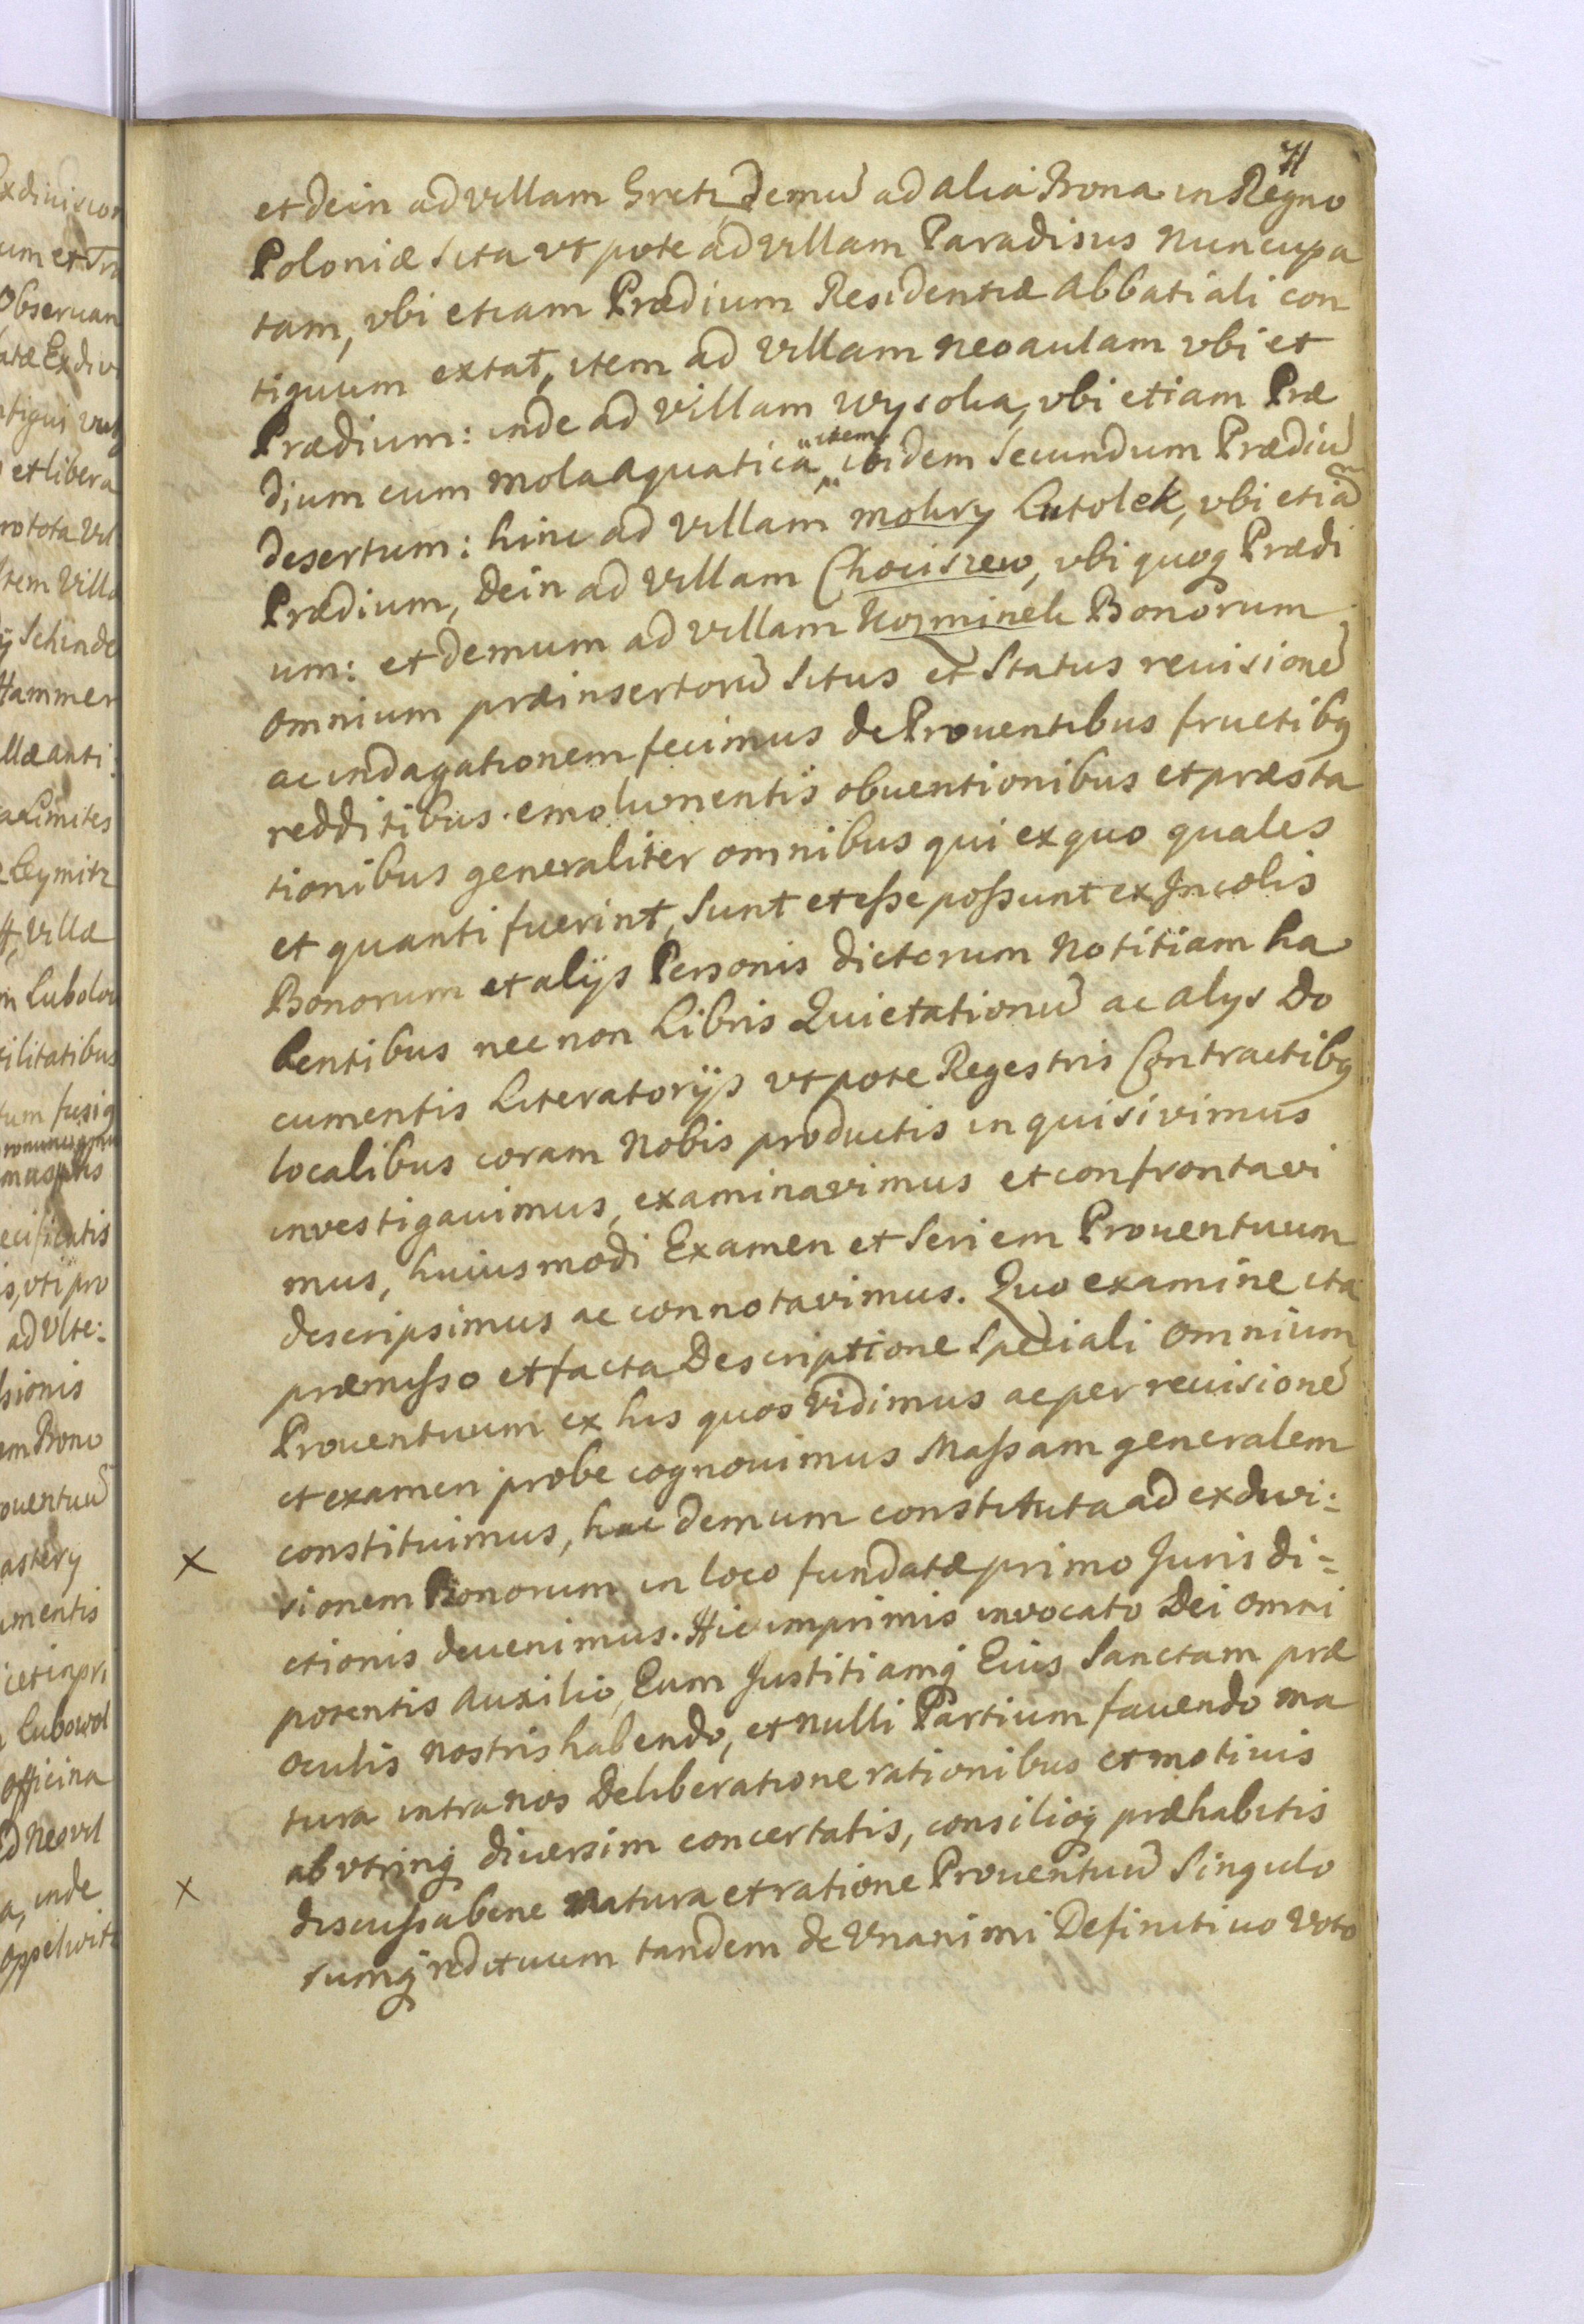 71
et dein ad Villam Greti, demũ ad alia Bona in Regno
Poloniæ Sita vt pote ad Villam Paradisus Nuncupa
tam, vbi etiam Prædium Residentiæ Abbatiali con
tiguum extat, item ad Villam Neoaulam vbi et
Prædium: inde ad Villam Wysoka, vbi etiam Præ
dium cum Mola Aquatica, item ibidem Secundum Prædiũ
desertum: hinc ad Villam Mokry Lutolek, vbi etiã
Prædium, Dein ad Villam Chociszew, vbi quoq Prædi
um: et demum ad Villam Kozminek Bonorum
Omnium præinsertorũ Situs et Status reuisionẽ
ac indagationem fecimus de Prouentibus fructibq
redditibus emolumentis obuentionibus et præsta
tionibus generaliter omnibus qui ex quo quales
et quanti fuerint, Sunt et eſse poſsunt ex Incolis
Bonorum et alijs Personis dictorum Notitiam ha
bentibus nec non Libris Quietationũ ac alys Do
cumentis Literatorijs vt pote Regestris Contractibq
localibus coram Nobis productis inquisivimus
investigauimus, examinavimus et confrontavi
mus, huiusmodi Examen et Seriem Prouentuum
descripsimus ac connotavimus. Quo examine ita
præmiſso et facta Descriptione Speciali Omnium
Prouentuum ex his quos Vidimus ac per reuisionẽ
et examen probe cognouimus Maſsam generalem
constituimus, hac demum constituta ad exdivi:
sionem Bonorum in loco fundatæ primo Jurisdi=
ctionis deuenimus. Hic imprimis invocato Dei Omni
potentis Auxilio, Eum Justitiamq Eius Sanctam præ
Oculis Nostris habendo, et Nulli Partium fauendo Ma
tura intra Nos Deliberatione rationibus et motiuis
ab vtrinq diversim concertatis, consilioq præhabitis
discuſsa bene Natura et ratione Prouentuũ Singulo
rumq redituum tandem de Vnanimi Definitiuo Voto